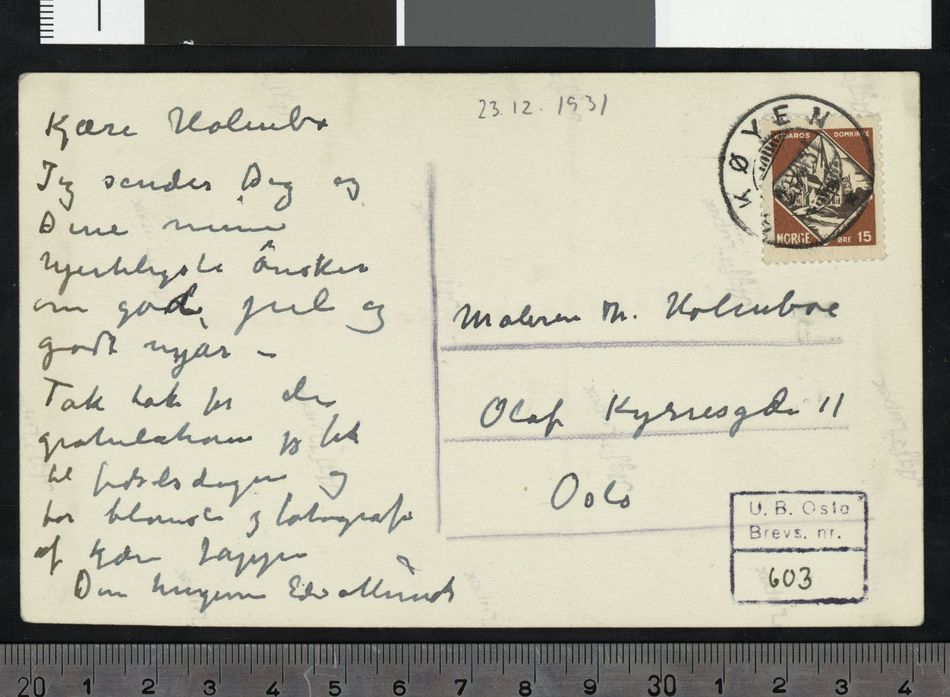 23.12.1931
Kjære Holmbo
Jeg sender Dig og
Dine mine
hjerteligste Ønsker
om god jul og
godt nyår –
Tak tak for
gratulationen jeg fik
til fødselsdagen og
for blomster og fotografi
af
Din hengivne Edv. Munch
KØYEN
DOMKIRKE
NORGE ØRE 15
Maleren Th. Holmboe
Olaf Kyrresgde 11
Oslo
U. B. Oslo
Brevs. nr.
603
20 1 2 3 4 5 6 7 8 9 30 1 2 3 4